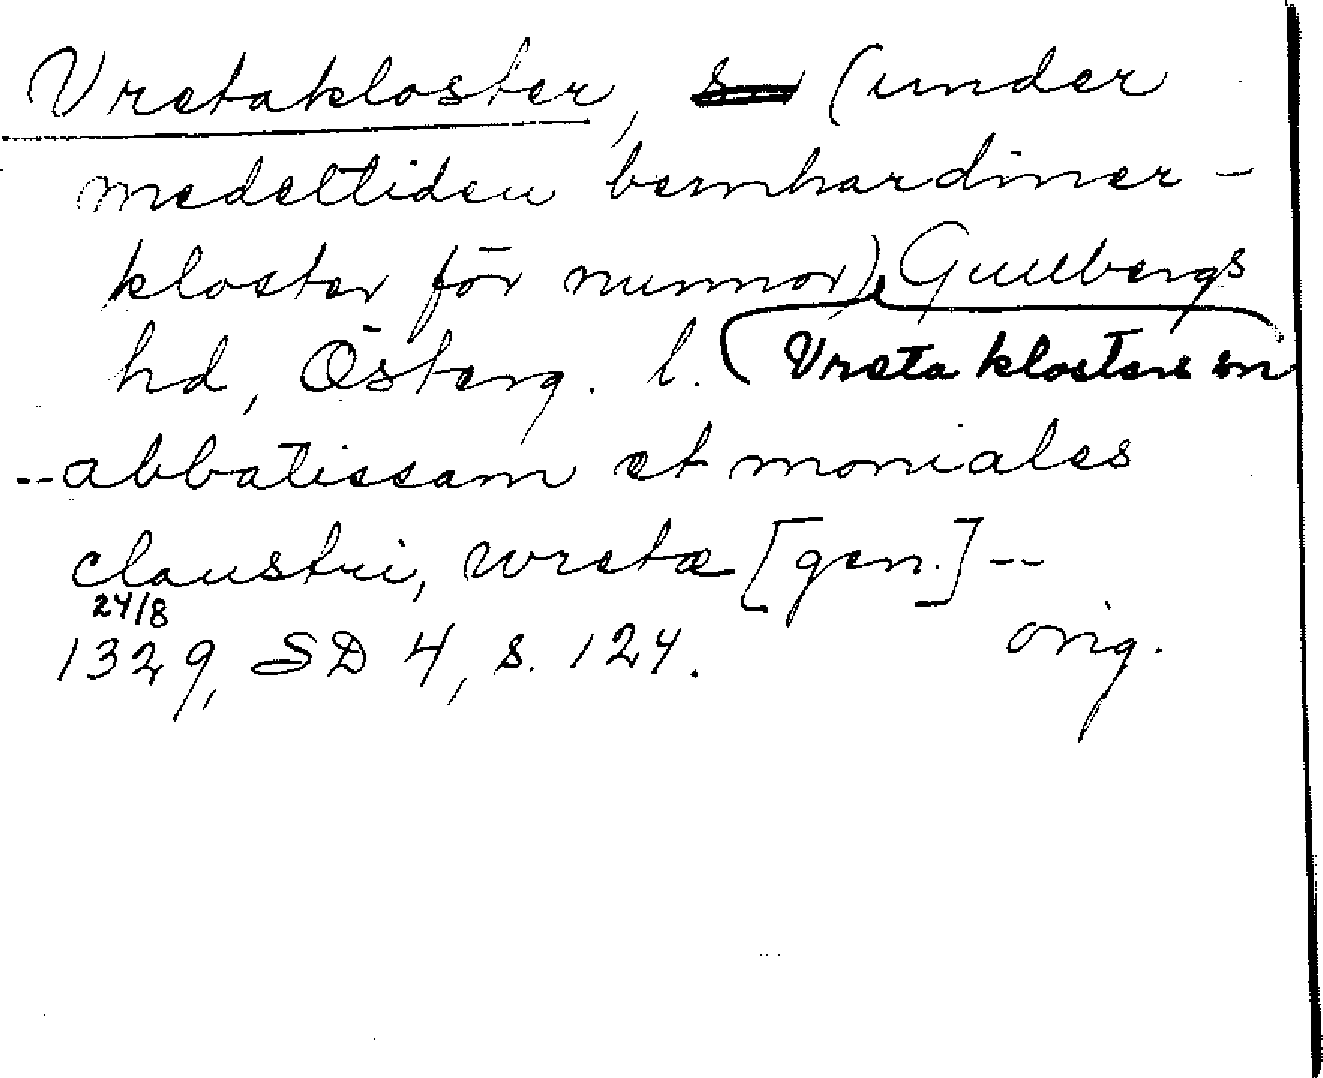 Vretakloster, (under
medeltiden bernhardiner-
kloster för nunnor), Gullbergs
hd, Österg. l. Vreta klosters sn
--abbatissam et moniales
claustri, wretæ [gen.] --
24/8
1329, SD 4, s. 124. orig.